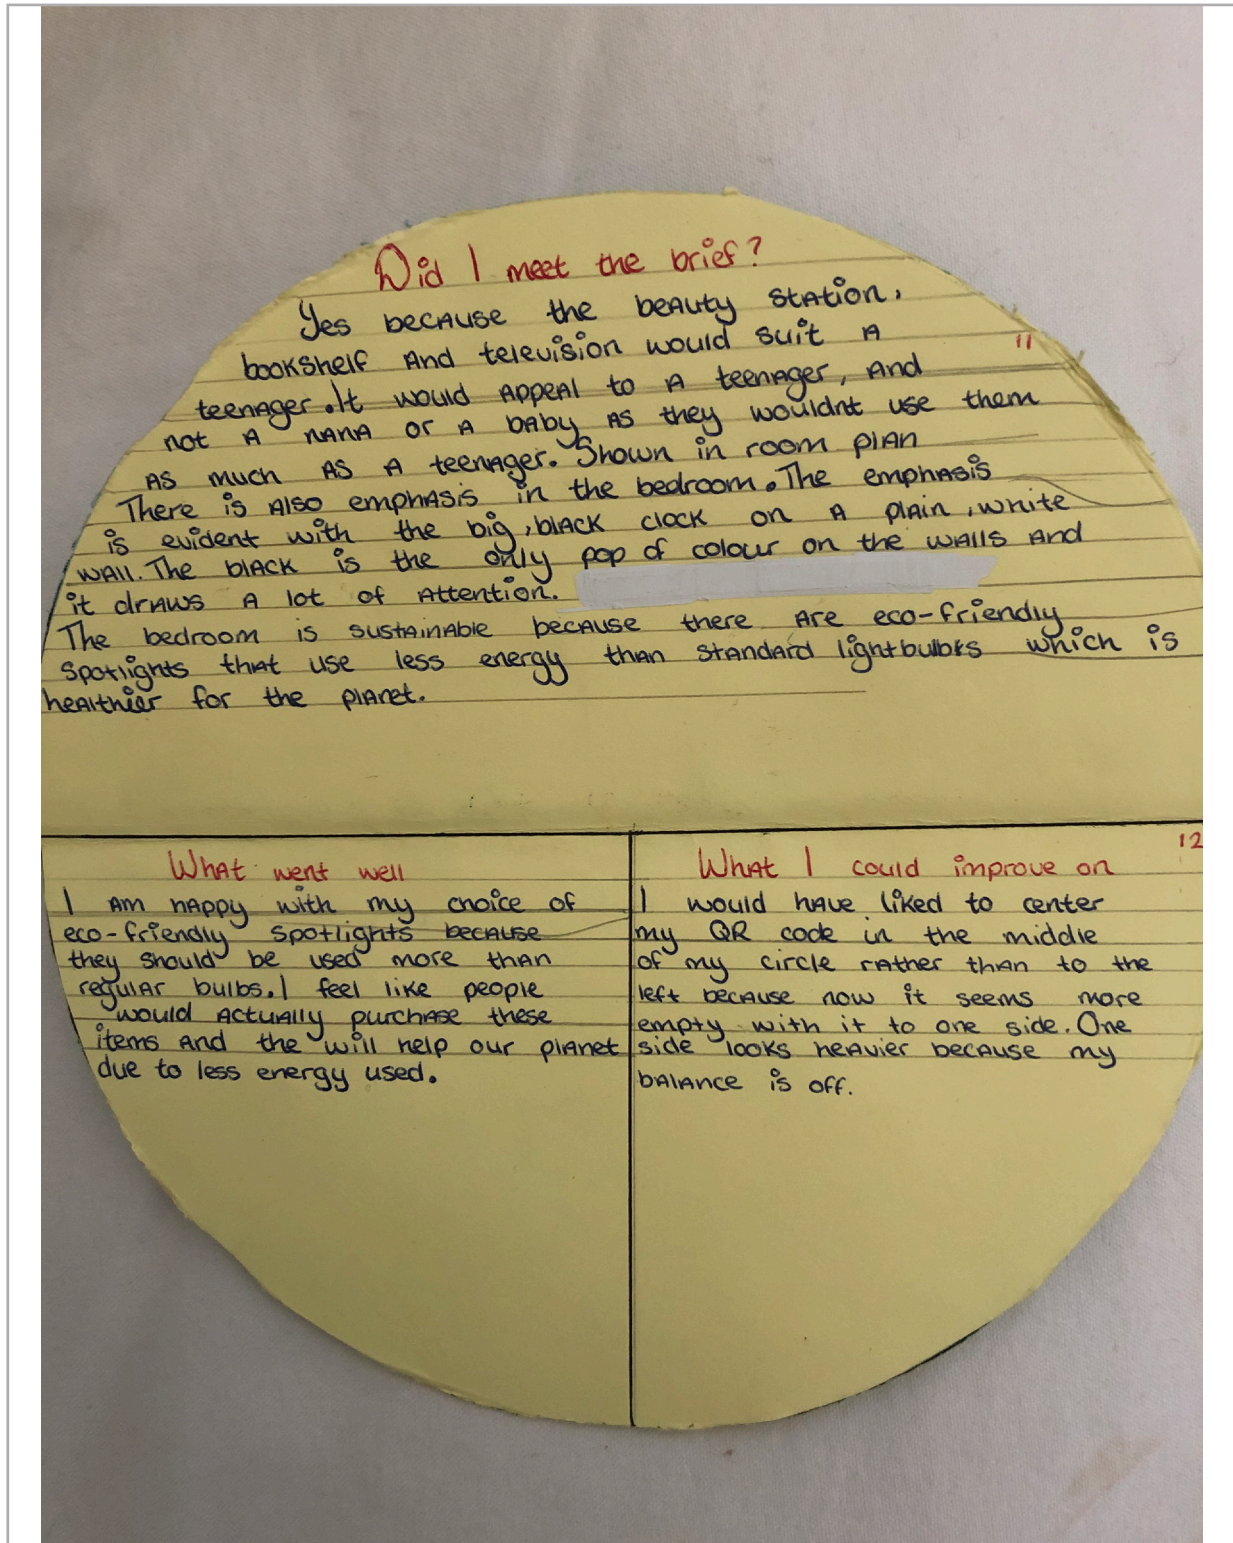 Did I meet the brief?
Yes because the beauty station,
bookshelf and television would suit a
11
teenager. It would appeal to a teenager, and
not a nana or a baby as they wouldnt use them
as much as a teenager. Shown in room plan
There is also emphasis in the bedroom. The emphasis
is evident with the big, black clock on a plain, white
wall. The black is the only pop of colour on the walls and
it draws a lot of attention.
The bedroom is sustainable because there are eco-friendly
spotlights that use less energy than standard lightbulbs which is
healthier for the planet.
What went well
I am happy with my choice of
eco-friendly spotlights because
they should be used more than
regular bulbs. I feel like people
would actually purchase these
items and the will help our planet
due to less energy used.
12
What I could improve on
I would have liked to center
my QR code in the middle
of my circle rather than to the
left because now it seems more
empty with it to one side. One
side looks heavier because my
balance is off.